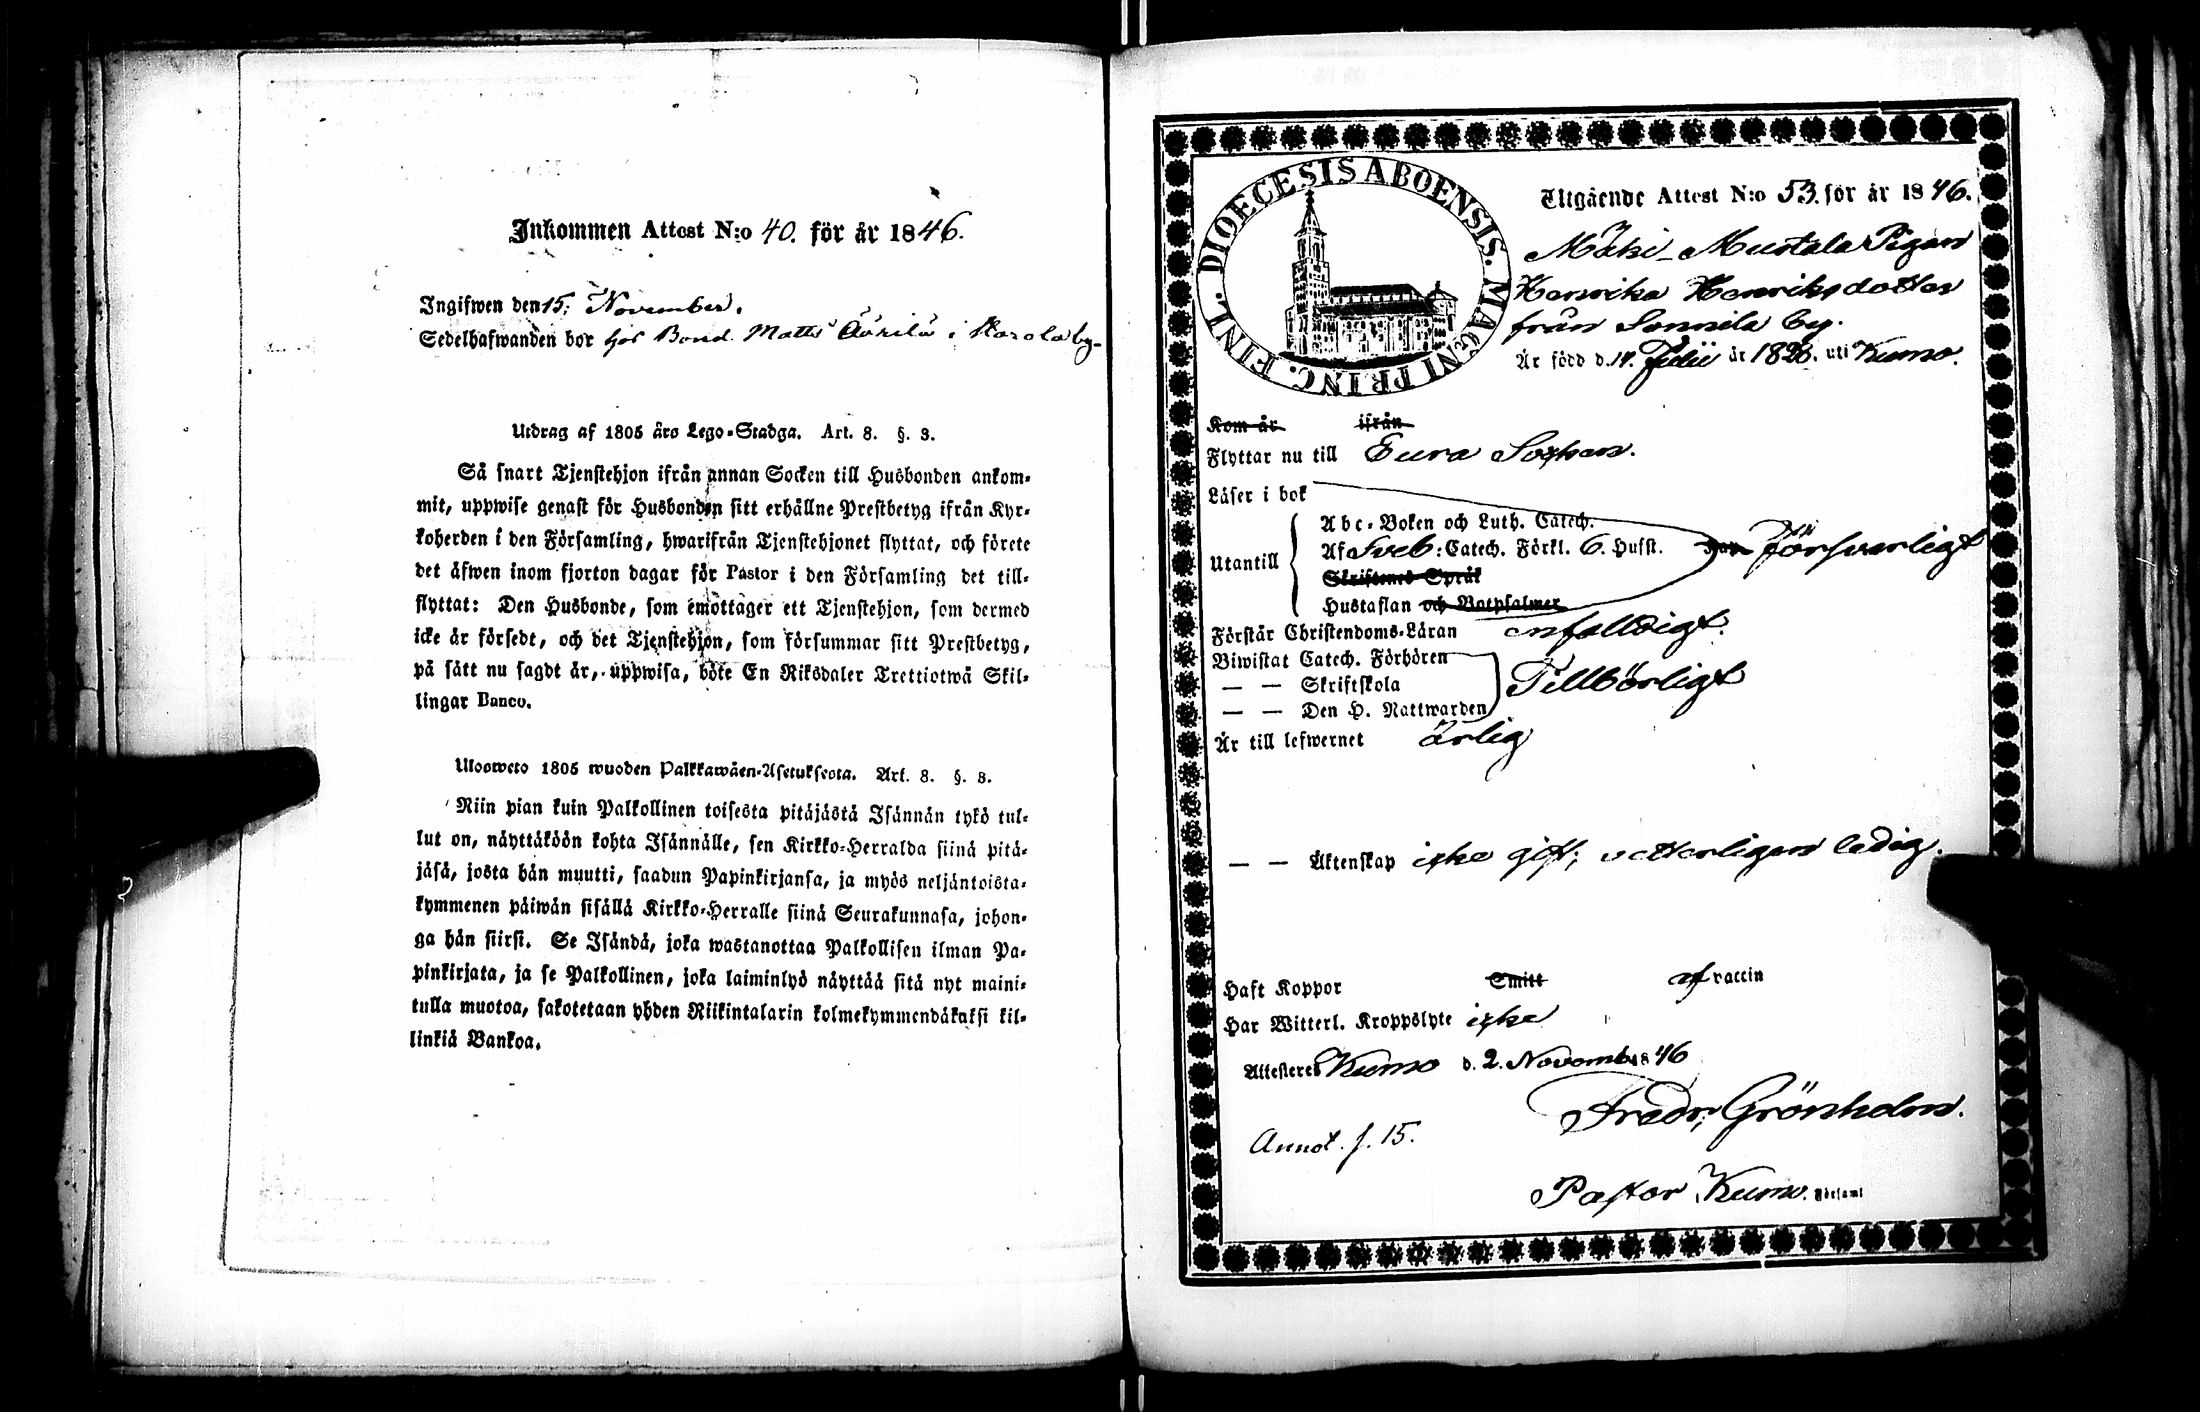 Inkommen Attest N:o 40. för år 1846.
Ingifwen den 15. November.
Sedelhafwanden bor hos Bond. Matts i by
Utdrag af 1805 års Lego-Stadga. Art. 8. §. 3.
Så snart Tjenstehjon ifrån annan Socken till Husbonden ankom-
mit, uppwise genast för Husbonden sitt erhållne Prestbetyg ifrån Kyr-
koherden i den Församling, hwarifrån Tjenstehjonet flyttat, och förete
det äfwen inom fjorton dagar för Pastor i den Församling det till-
flyttat: Den Husbonde, som emottager ett Tjenstehjon, som dermed
icke är försedt, och det Tjenstehjon, som försummar sitt Prestbetyg,
på sätt nu sagdt är, uppwisa, böte En Riksdaler Trettiotwå Skil-
lingar Banco.
Ulosweto 1805 wuoden Palkkawäen-Asetuksesta. Art. 8. §. 3.
Niin pian kuin Palkollinen toisesta pitäjästä Isännän tykö tul-
lut on, näyttäköön kohta Isännälle, sen Kirkko-Herralda siinä pitä-
jäsä, josta hän muutti, saadun Papinkirjansa, ja myös neljäntoista-
kymmenen päiwän sisällä Kirkko-Herralle siinä Seurakunnasa, johon-
ga hän siirsi. Se Isändä, joka wastanottaa Palkollisen ilman Pa-
pinkirjata, ja se Palkollinen, joka laiminlyö näyttää sitä nyt maini-
tulla muotoa, sakotetaan yhden Riikintalarin kolmekymmendäkaksi kil-
linkiä Bankoa.
DIOECESIS ABOENSIS. MAGNI PRINC. FINL.
Utgående Attest N:o 53. för år 1846.
Mäki-Mustala Pigan
Henrika Henriksdotter
från Sonnila by.
Är född d. 14. Julii år 1826. uti Kumo.
Kom år ifrån
Flyttar nu till Eura Sochen.
Läser i bok
Utantill
Abc-Boken och Luth. Catech.
Af Sveb: Catech. Förkl. 6. Hufst. försvarligt
Skriftenes Språk
Hustaflan och Botpsalmer
Förstår Christendoms-Läran enfalldigt.
Biwistat Catech. Förhören
— — Skriftskola Tillbörligt
— — Den H. Nattwarden
Är till lefwernet ärlig
— — Äktenskap icke gift; vetterligen ledig.
Haft Koppor Smitt af vaccin
Har Witterl. Kroppslyte icke
Attesteres Kumo d. 2. Novemb. 1846
Fredr. Grönholm.
Annot. f. 15.
Pastor i Kumo. Församl